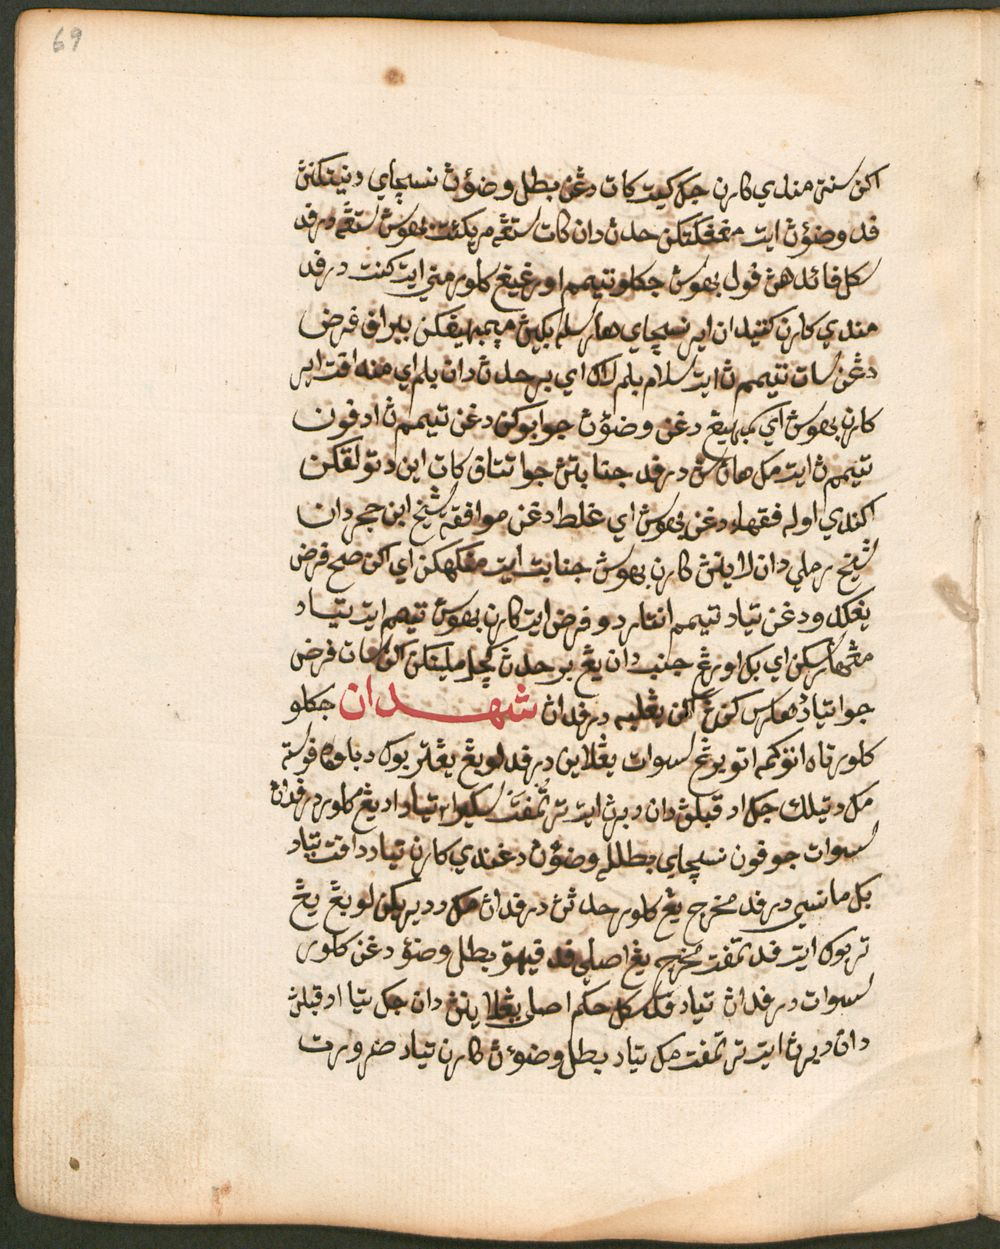 69
اكن سنة مندي كارن جك كيت كات دڠن بطل وضؤن نسچاي دنيتكنڽ
فد وضؤن ايت مڠڠكتكن حدث دان كات ستڠه مريكئيت بهوس ستڠه درفد
سكل فائدهن فول بهوس جكلو تيمم اورڠ يڠ كلور مني ايت كنت درفد
مندي كارن كتيدان اير نسچاي هارسله باكين ممبهيفكن ببراف فرض
دڠن سات تيممن ايت سلام بلم لاك اي برحدث دان بلم اي منداڤت اير
كارن بهوس اي كمبهيڠ دڠن وضؤن جوابوكن دڠن تيممن ادفون
تيممن ايت مك هاڽ درفد جنابتن جوا تتاف كات اين دتولقكن
اكندي اوله فقهاء دڠن بهوس اي غلط دڠن موافقه شيخ ابن حجر دان
شيخ رملي دان لاينڽ كارن بهوس جنابت ايت مڠكهكن اي اكن صح فرض
يڠ كدو دڠن تياد تيمم انتار دو فرض ايت كارن بهوس تيمم ايت تياد
مڠهارسكن اي بك اورڠ جنب دان يڠ برحدث كچل ملينكن اكن سات فرض
جوا تياد هارس كن اكن يڠ لبه درفدان شهدان جكلو
كلور تاه اتوكمه اتو برڠ سسوات يڠ لاين درفد لوبڠ يڠ تربوك دباوه فوست
مك دتيلك جك اد قبلن دان دبرن ايت ترتمفت سكيرا٢ تياد اد يڠ كلور درفدان
سسوات جوفون نسچاي بطلله وضؤن دڠندي كارن تياد دافت تياد
بك مانسي درفد مخرج يڠ كلور حدثن درفدان مك دديريكن لوبڠ يڠ
تربوك ايت فد تمفت مخرج يڠ اصلي فد فيهق بطل وضؤ دڠن كلور
سسوات درفدان تياد فد سكل حكم اصلي يڠ لاينڽ دان جك تيا اد قبلن
دان دبرن ايت ترتمفت مك تياد بطل وضؤن كارن تياد ضرورت